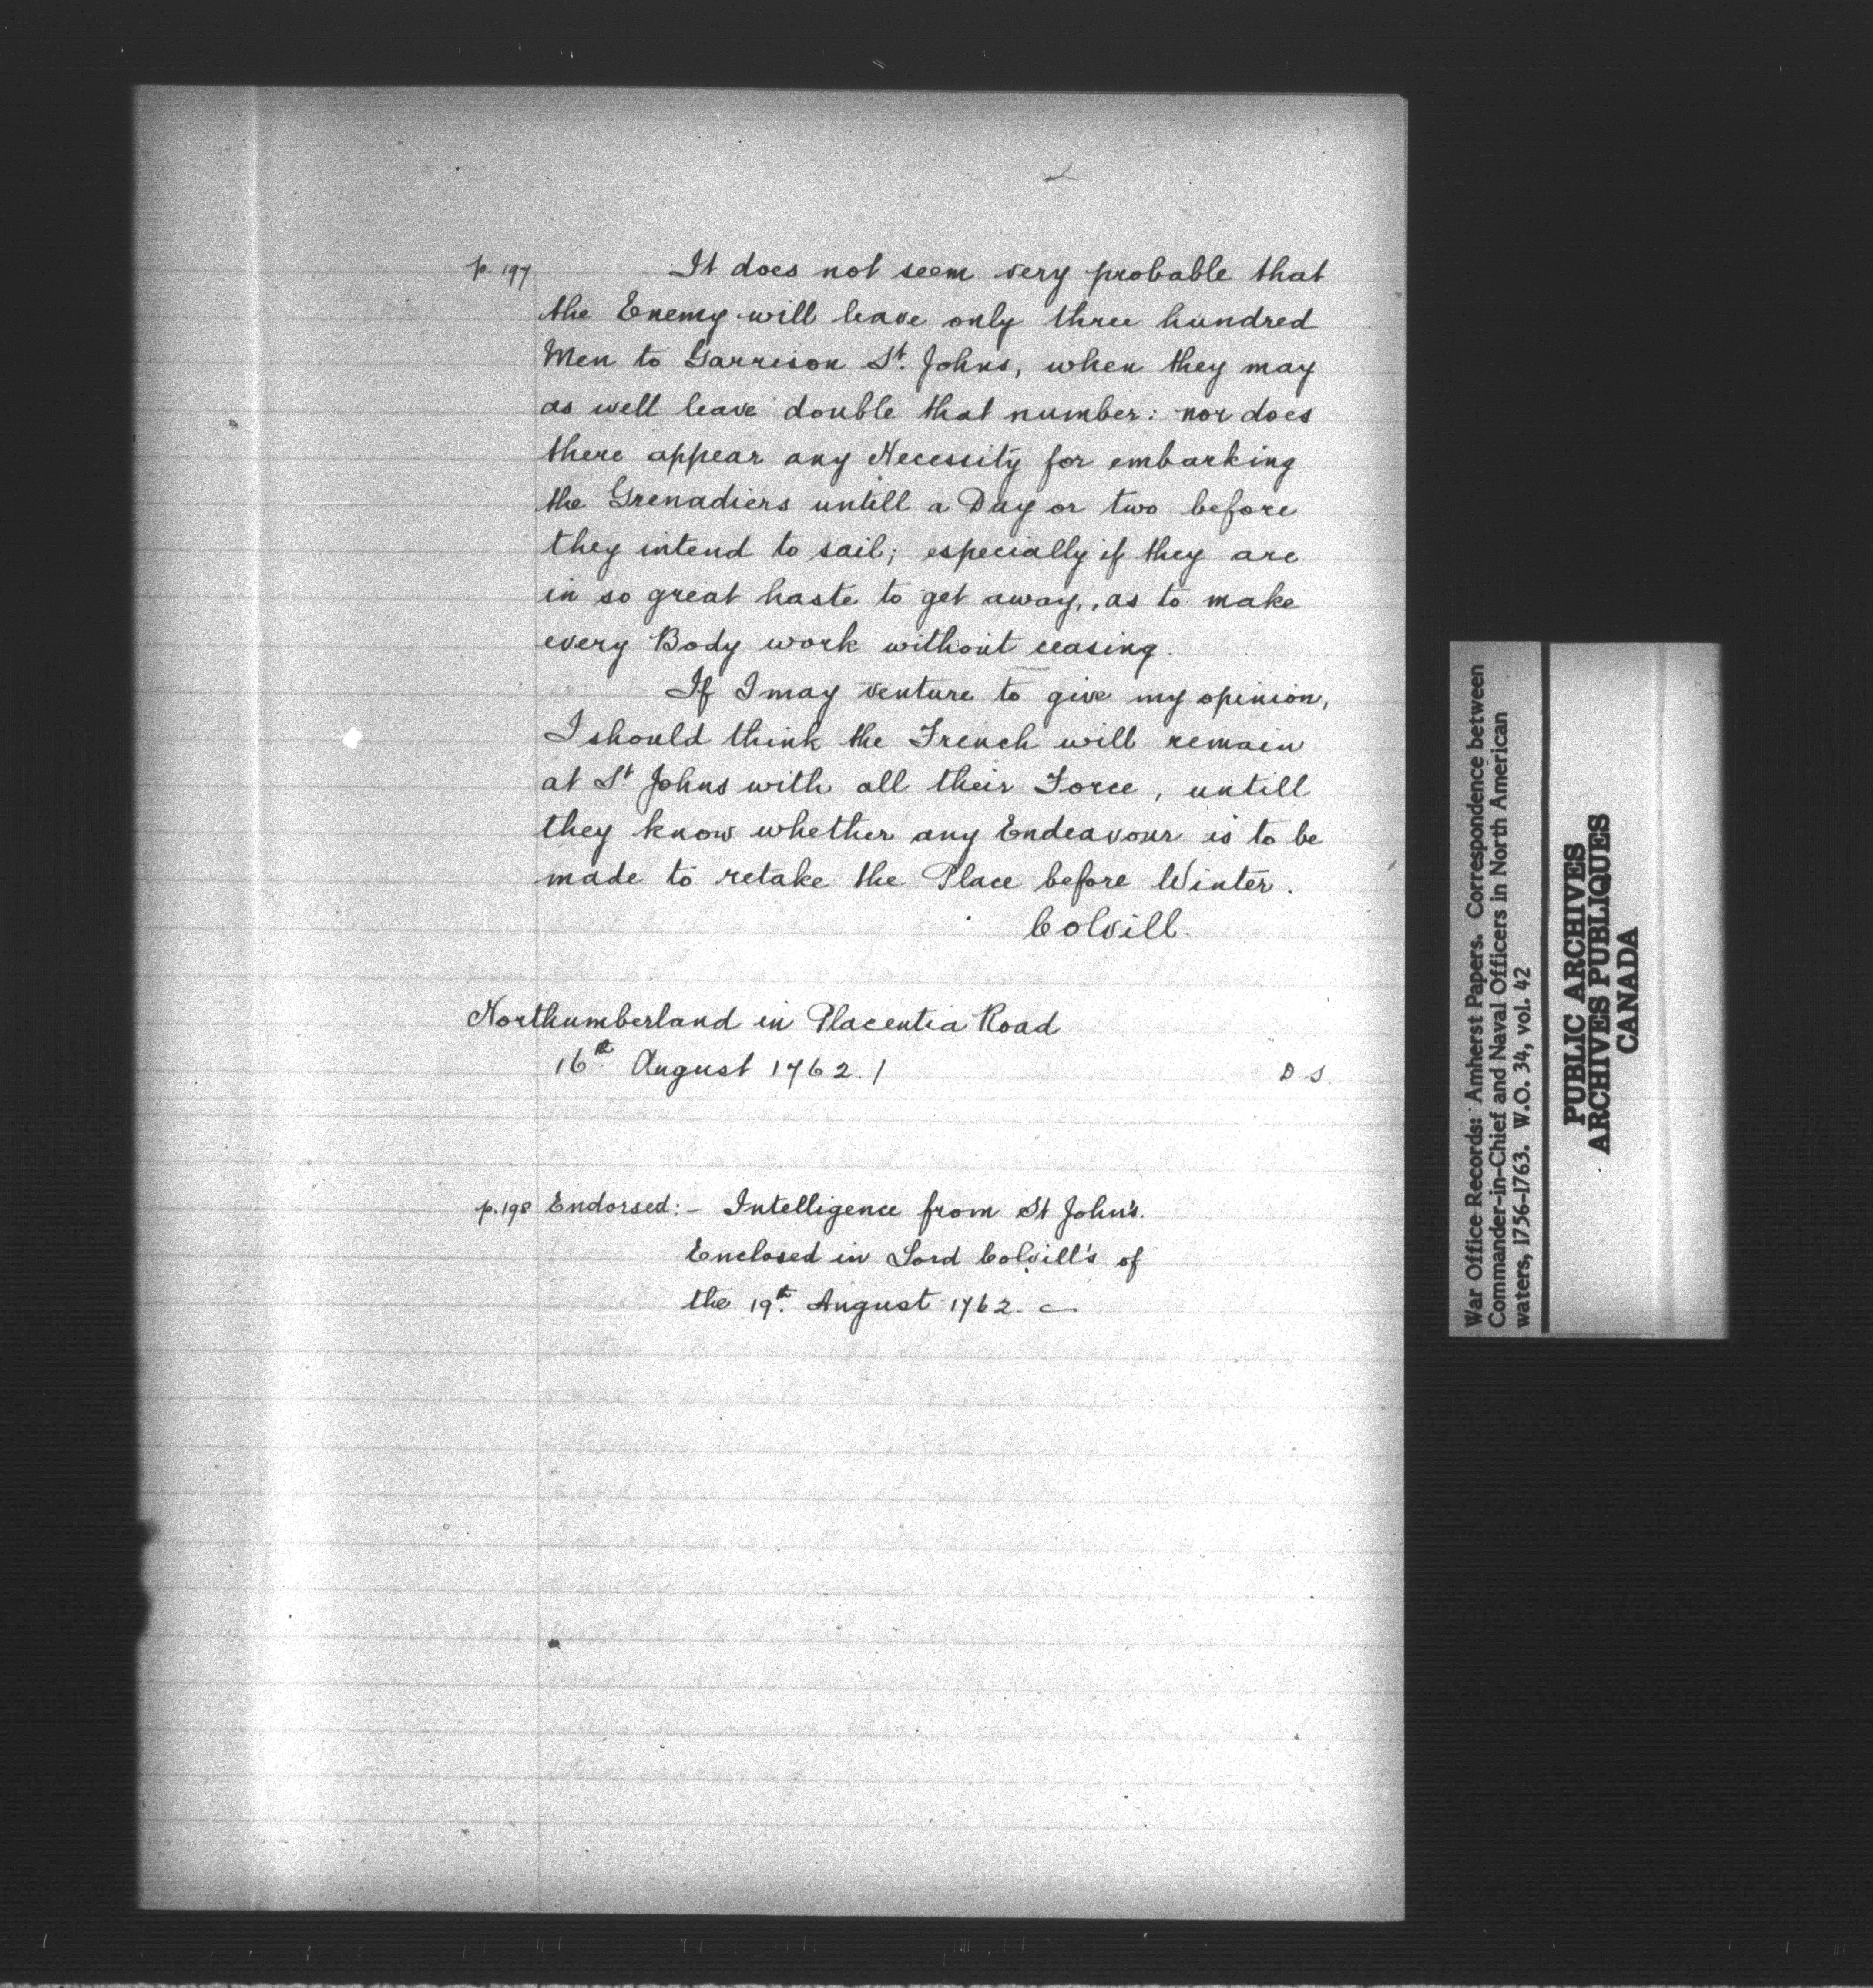 p. 197 It does not seem very probable that
the Enemy will leave only three hundred
Men to Garrison St. Johns, when they may
as well leave double that number: nor does
there appear any Necessity for embarking
the Grenadiers untill a Day or two before
they intend to sail; especially if they are
in so great haste to get away, as to make
every Body work without ceasing.
If I may venture to give my opinion,
I should think the French will remain
at St Johns with all their Force, untill
they know whether any Endeavour is to be
made to retake the Place before Winter.
Colvill.
Northumberland in Placentia Road
16th August 1762. /
D.S.
p. 198 Endorsed: - Intelligence from St John's.
Enclosed in Lord Colvill's of
the 19th. August 1762. —
War Office Records: Amherst Papers. Correspondence between
Commander-in-Chief and Naval Officers in North American
waters, 1756-1763. W.O. 34, vol. 42
PUBLIC ARCHIVES
ARCHIVES PUBLIQUES
CANADA